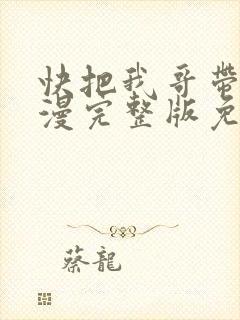 快把我哥帶
漫完整版免
蔡龍